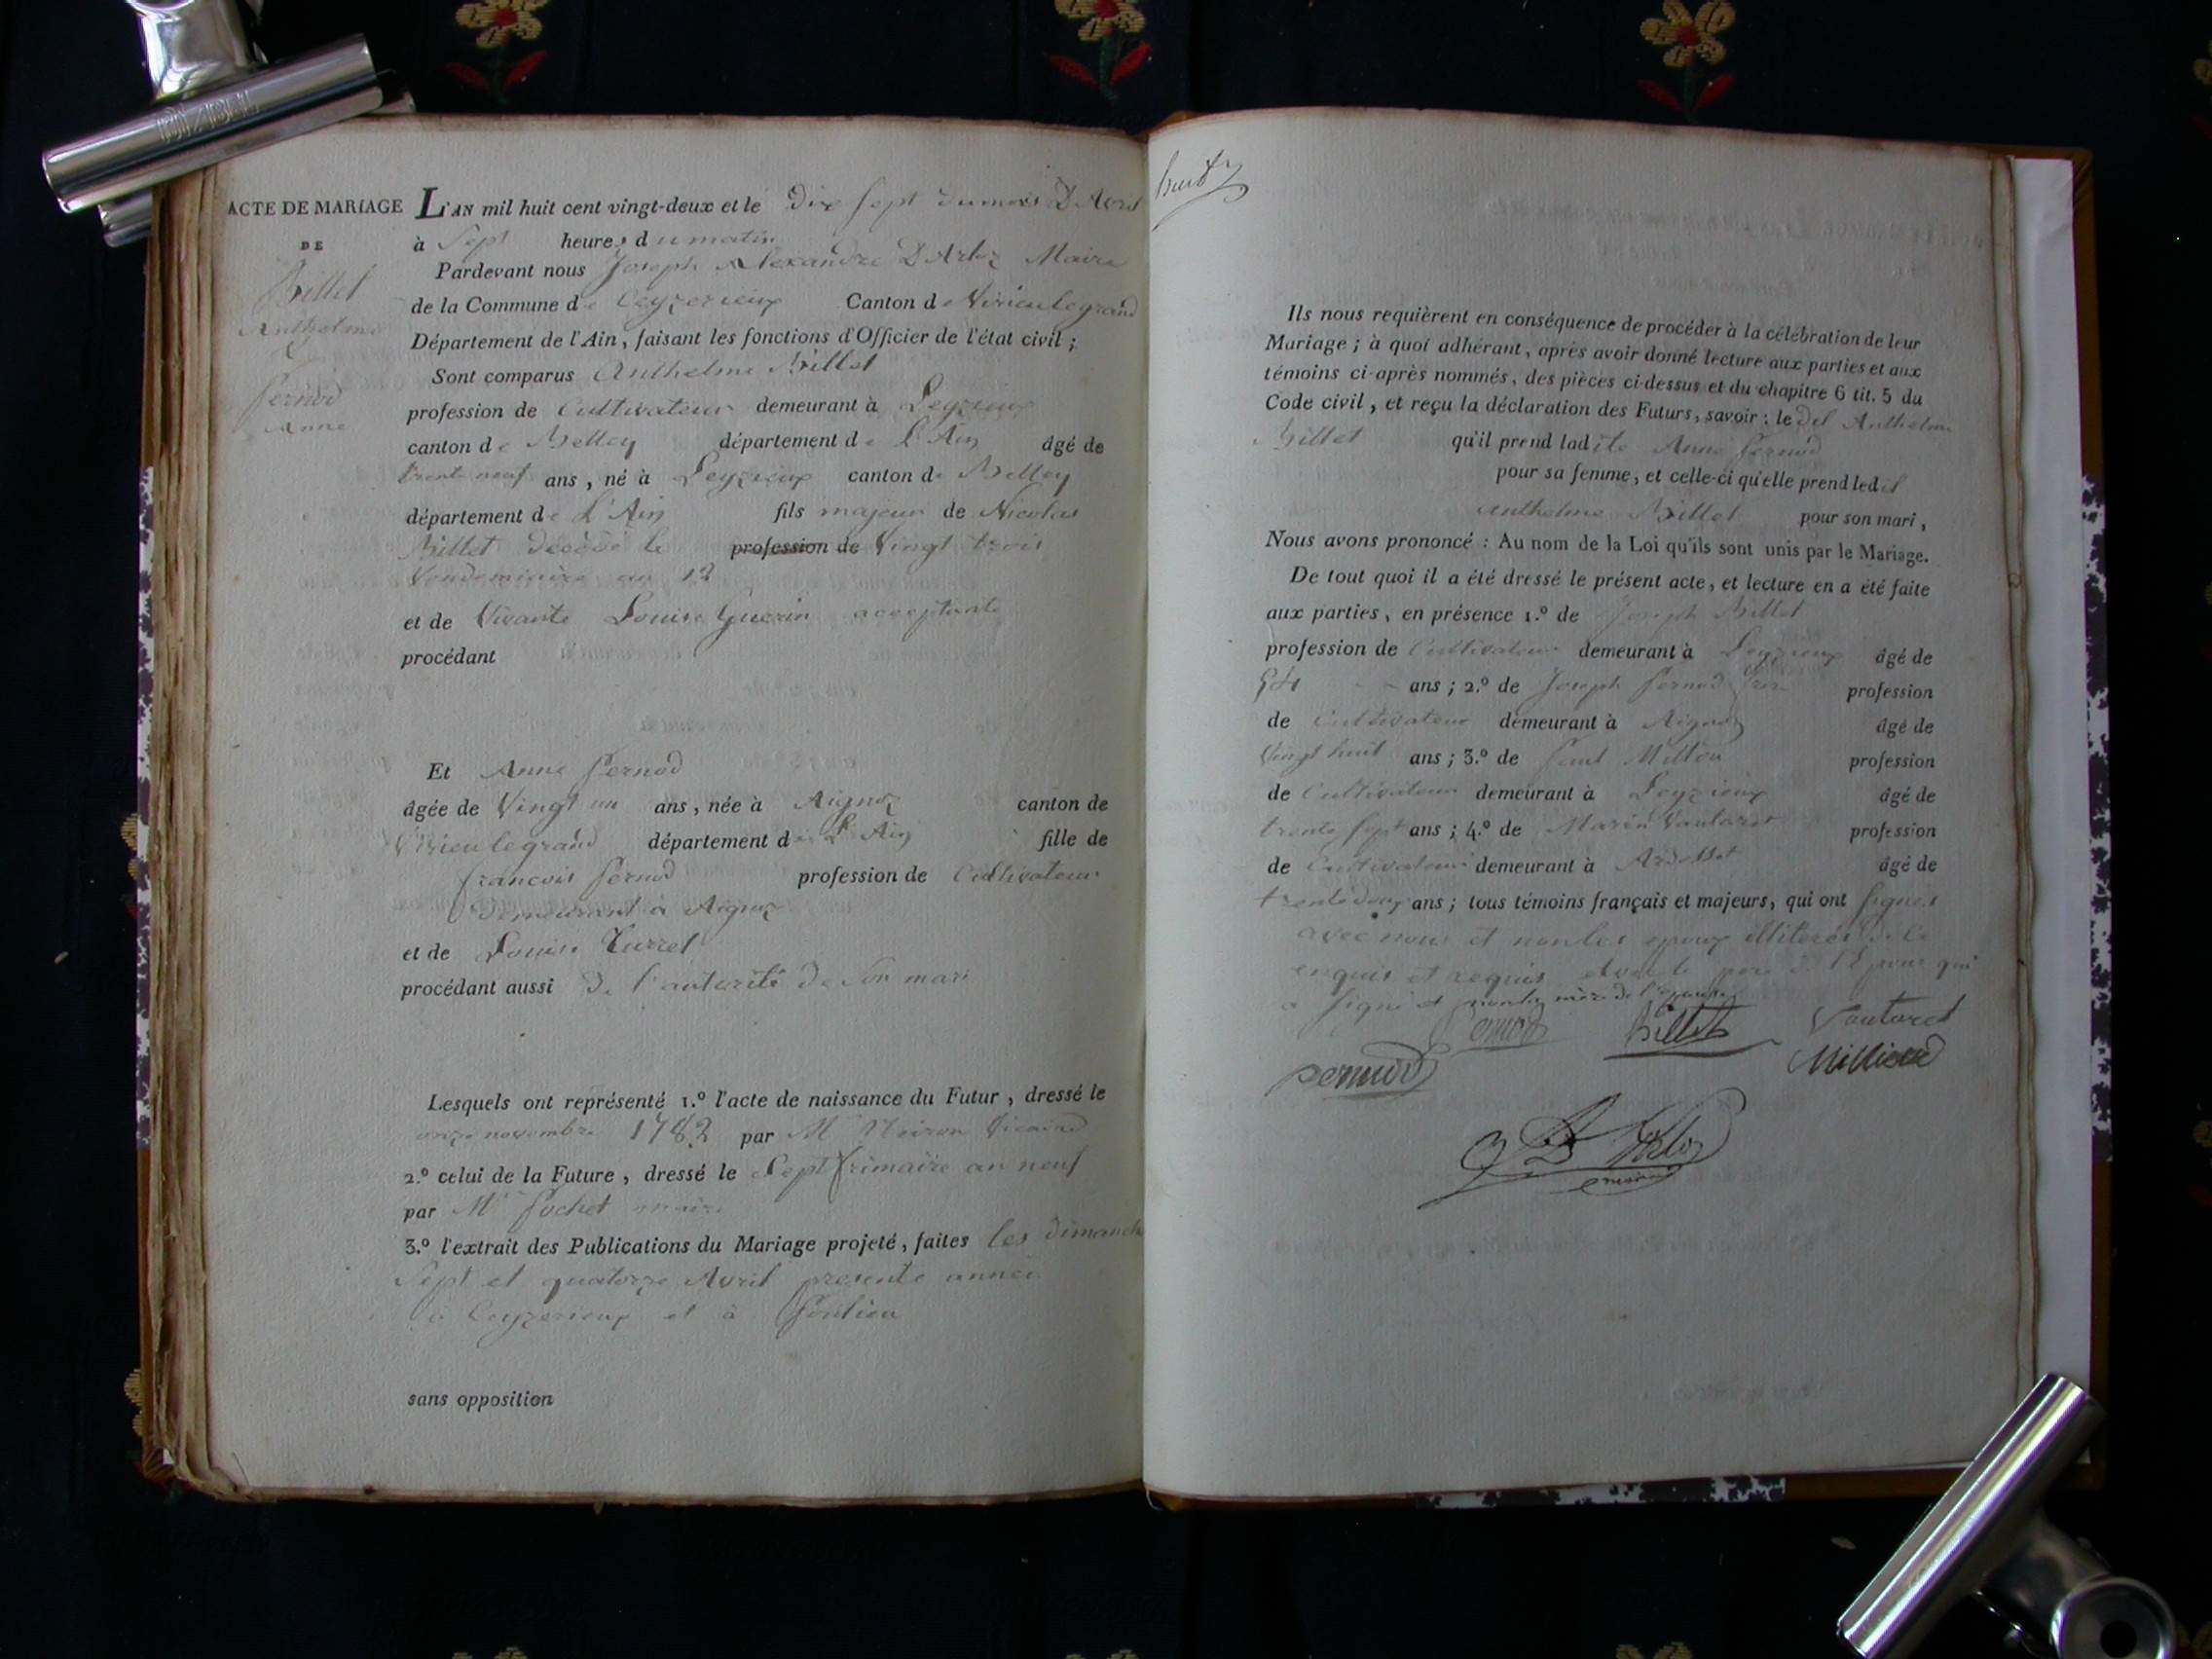 ACTE DE MARIAGE
DE
Billet
Anthelme
&
Pernod
Anne
L'AN mil huit cent vingt-deux et le Dix Sept du mois D'Avril
à Sept heures du matin
Pardevant nous Joseph Alexandre D'Arloz Maire
de la Commune de Ceyzerieux Canton de Virieulegrand
Département de l'Ain, faisant les fonctions d'Officier de l'état civil ;
Sont comparus Anthelme Billet
profession de Cultivateur demeurant à Leyzieux
canton de Belley département de L'Ain âgé de
trente neuf ans, né à Leyzieux canton de Belley
département de L'Ain fils majeur de Nicolas
Billet décédé le profession de Vingt trois
Vendemiaire an 12
et de Vivante Louise Guerin acceptante
procédant
Et Anne Pernod
âgée de Vingt un ans, née à Aignoz canton de
Virieulegrand département de L'Ain fille de
francois Pernod profession de Cultivateur
Demeurant à Aignoz
et de Louise Turrel
procédant aussi De l'autorité de Son mari
Lesquels ont représenté 1.º l'acte de naissance du Futur, dressé le
onze novembre 1782 par Mr Vicaire
2.º celui de la Future, dressé le Sept frimaire an neuf
par Mr Pochet maire
3.º l'extrait des Publications du Mariage projeté, faites les dimanche
Sept et quatorze Avril presente année
à Ceyzerieux et à
sans opposition
huit
Ils nous requièrent en conséquence de procéder à la célébration de leur
Mariage ; à quoi adhérant, après avoir donné lecture aux parties et aux
témoins ci-après nommés, des pièces ci-dessus et du chapitre 6 tit. 5 du
Code civil, et reçu la déclaration des Futurs, savoir : le dit Anthelme
Billet qu'il prend ladite Anne Pernod
pour sa femme, et celle-ci qu'elle prend ledit
Anthelme Billet pour son mari,
Nous avons prononcé : Au nom de la Loi qu'ils sont unis par le Mariage.
De tout quoi il a été dressé le présent acte, et lecture en a été faite
aux parties, en présence 1.º de Joseph Billet
profession de Cultivateur demeurant à Leyzieux âgé de
54 ans ; 2.º de Joseph Pernod frère profession
de Cultivateur demeurant à Aignoz âgé de
Vingt huit ans ; 3.º de Paul profession
de Cultivateur demeurant à Leyzieux âgé de
trente Sept ans ; 4.º de Marin Vautaret profession
de Cultivateur demeurant à Ardosset âgé de
trente deux ans ; tous témoins français et majeurs, qui ont Signés
avec nous et non les epoux illiterés de ce
enquis et requis père de l'Epouse qui
a signé et non la mère de l'epouse
Pernod Billet Vautaret
pernod Millieu
D'Arloz
maire